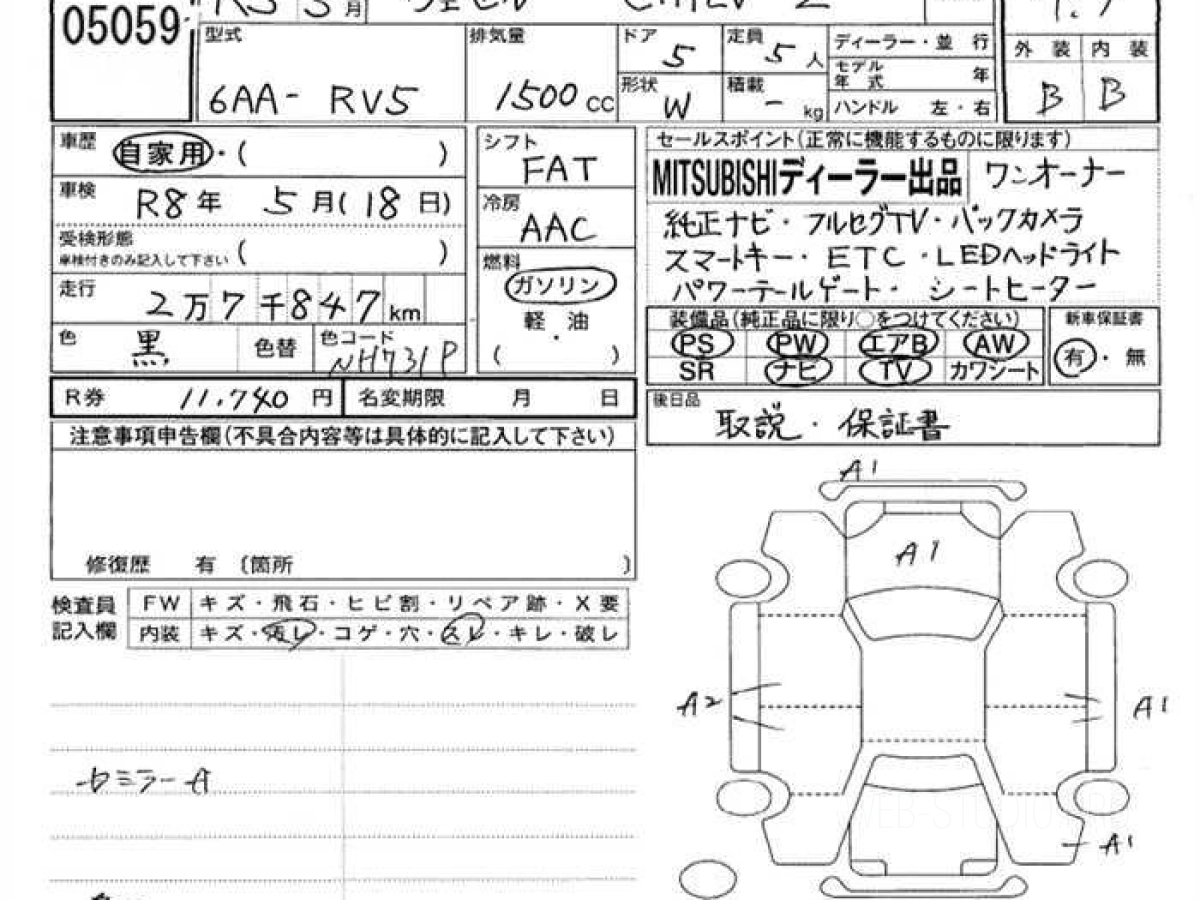 05059
R5 5月 ヴェゼル e:HEV Z
型式 6AA-RV5
排気量 1500 cc
ドア 5
定員 5人
形状 W
積載 - kg
ディーラー・並 行
モデル年式 年
ハンドル 左・右
外 装 内 装
B B
車歴 自家用・( )
車検 R8年 5月(18日)
受検形態
車検付きのみ記入して下さい ( )
走行 2万7千847km
色 黒 色替 色コード NH731P
シフト FAT
冷房 AAC
燃料 ガソリン
軽・油
( )
セールスポイント(正常に機能するものに限ります)
MITSUBISHIディーラー出品 ワンオーナー
純正ナビ・フルセグTV・バックカメラ
スマートキー・ETC・LEDヘッドライト
パワーテールゲート・シートヒーター
装備品(純正品に限り○をつけてください)
PS PW エアB AW
SR ナビ TV カワシート
新車保証書
有・無
R券 11,740円 名変期限 月 日
後日品 取説・保証書
注意事項申告欄(不具合内容等は具体的に記入して下さい)
修復歴 有 〔箇所 〕
検査員記入欄
FW キズ・飛石・ヒビ割・リペア跡・X要
内装 キズ・汚レ・コゲ・穴・スレ・キレ・破レ
A1
A1
A2
A1
A1
ミラーA